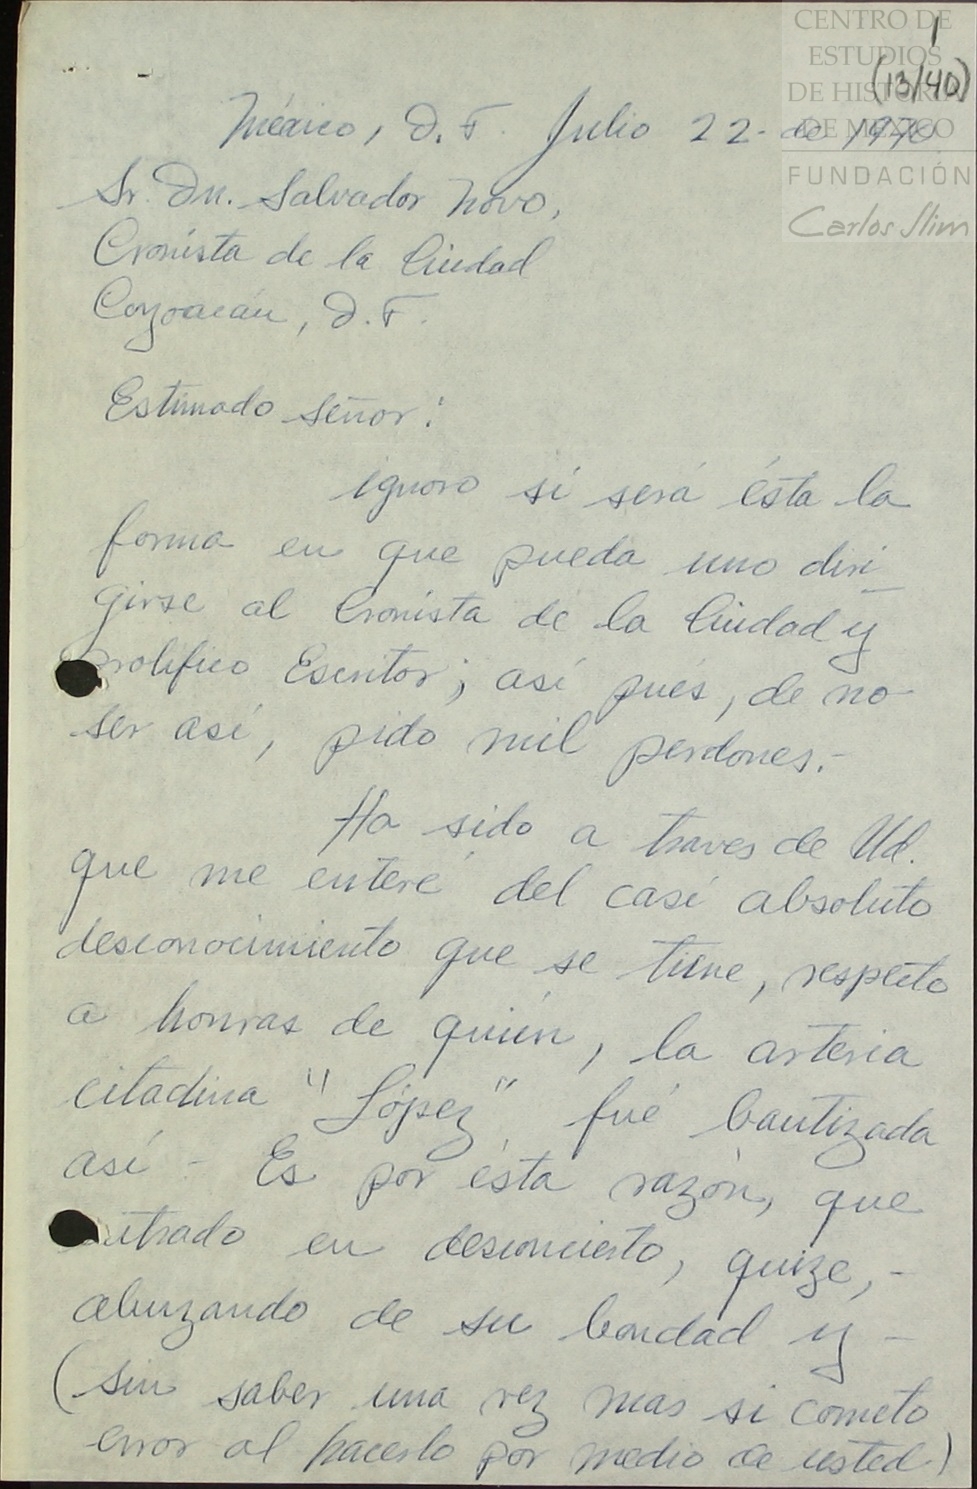 CENTRO DE
ESTUDIOS
DE HISTORIA
DE MÉXICO
FUNDACIÓN
Carlos Slim
1
(13/40)
México, D.F. Julio 22- de 1970
Sr. Dn. Salvador Novo,
Cronista de la Ciudad
Coyoacán, D.F.
Estimado señor:
ignoro si será ésta la
forma en que pueda uno diri-
girse al Cronista de la Ciudad y
prolífico Escritor; así pués, de no-
ser así, pido mil perdones.-
Ha sido a traves de Ud.
que me enteré del casi absoluto
desconocimiento que se tiene, respecto
a honras de quién, la arteria
citadina "López" fué bautizada
así - Es por ésta razón, que
entrado en desconcierto, quize,-
abuzando de su bondad y -
(sin saber una vez mas si cometo
error al hacerlo por medio de usted)